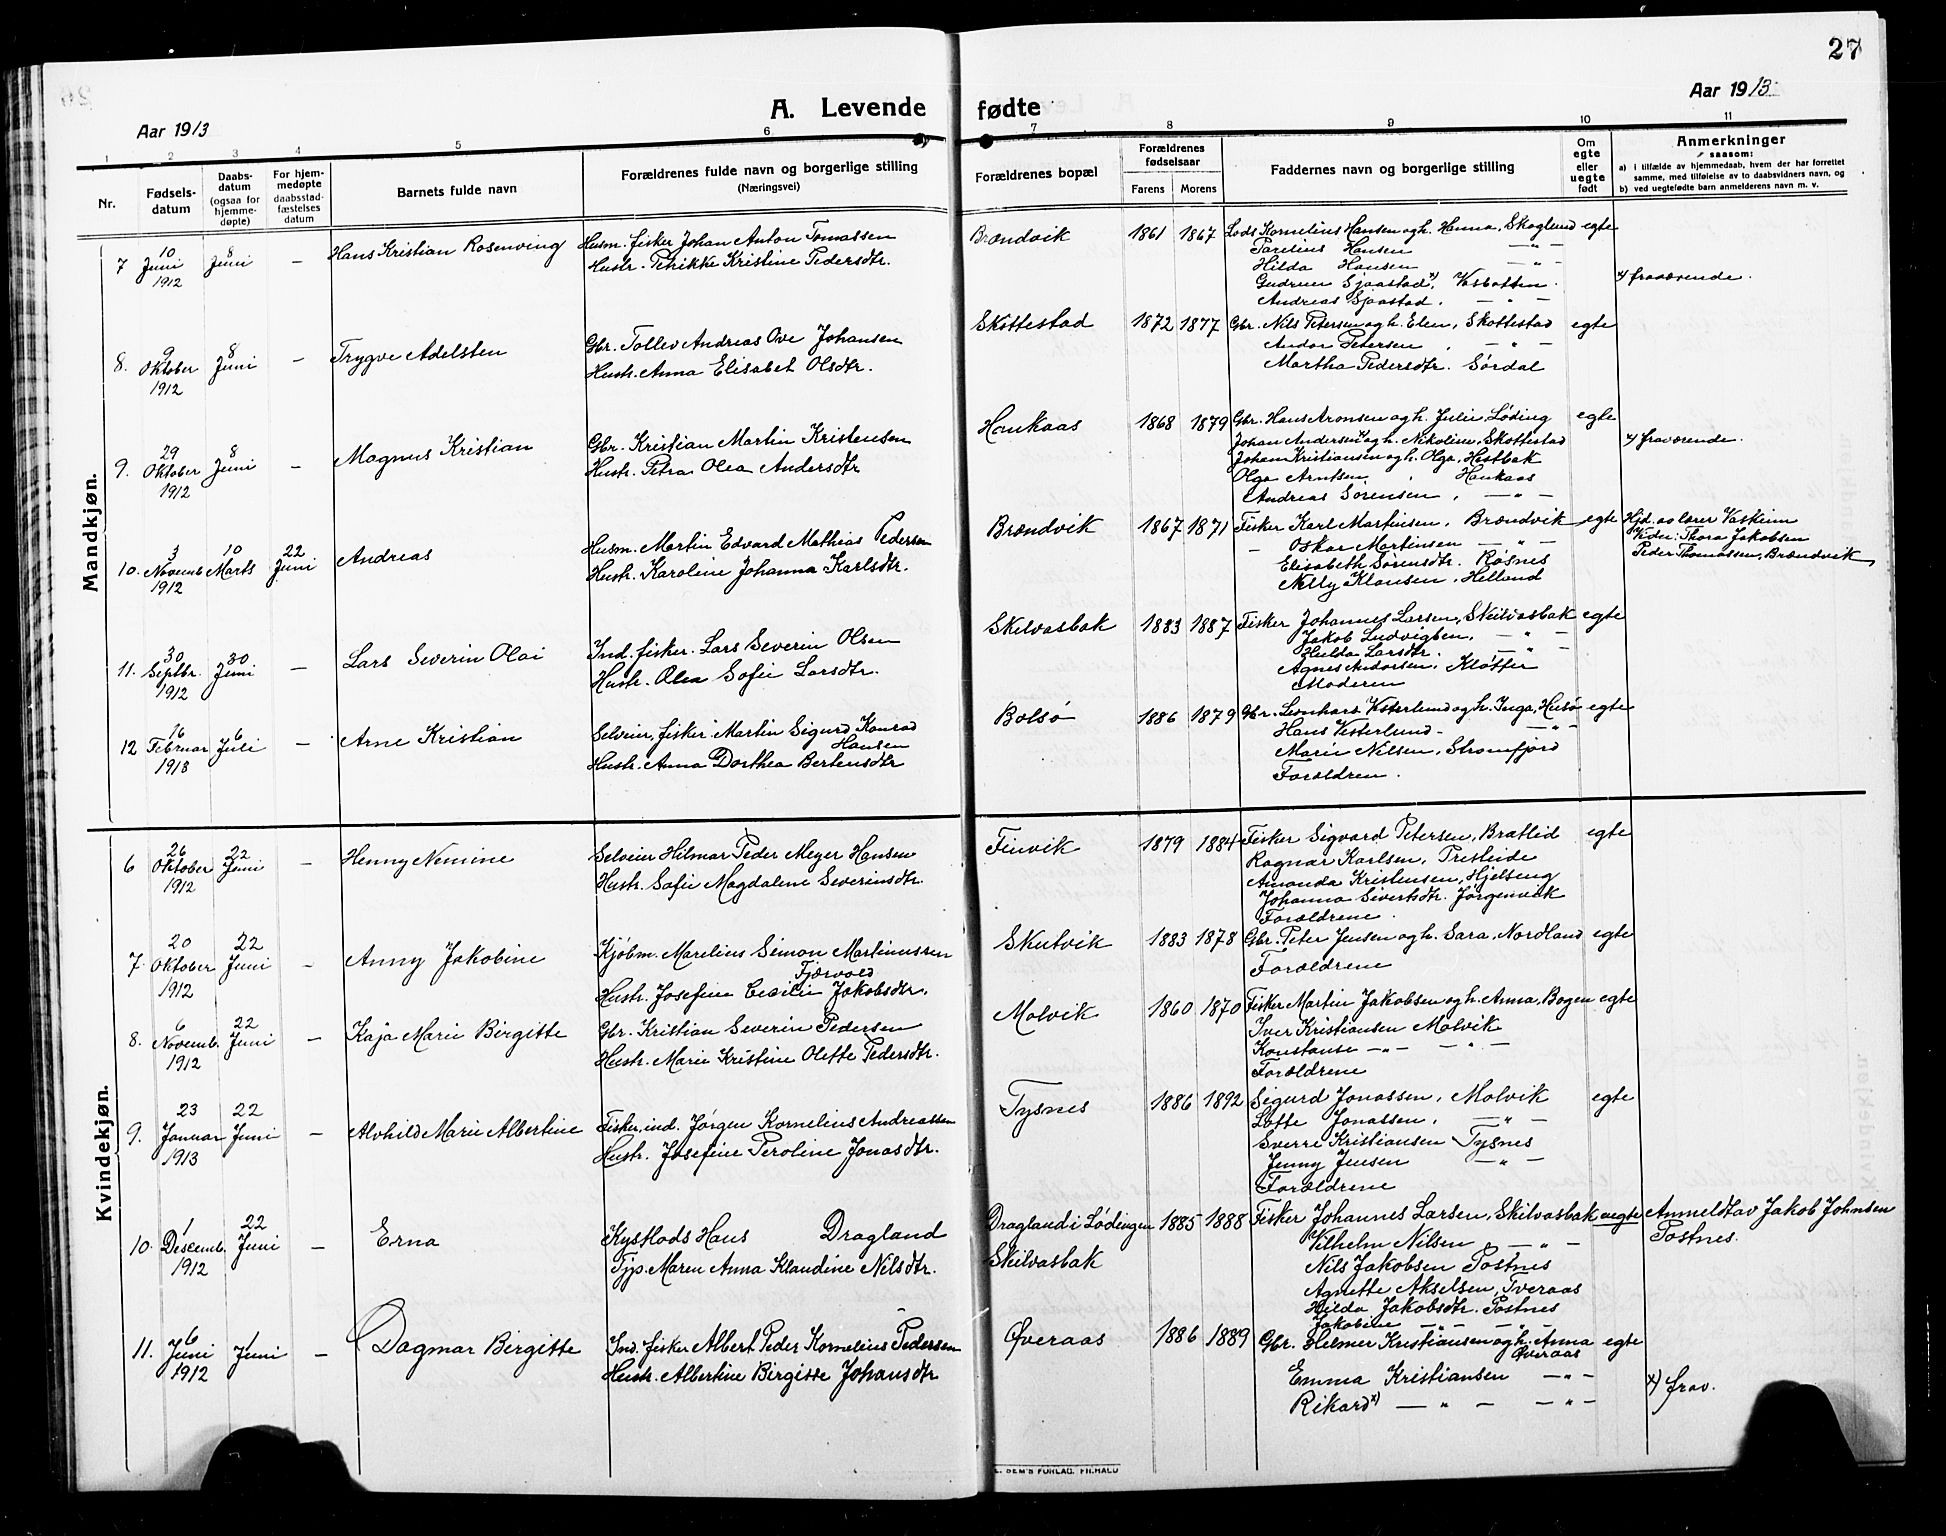 27
A. Levende fødte
Aar 1913
Aar 1913
1 2 3 4 5 6 7 8 9 10 11
Nr.
Fødsels-datum
Daabs-datum (ogsaa for hjemme-døpte)
For hjem-medøpte daabsstad-fæstelses datum
Barnets fulde navn
Forældrenes fulde navn og borgerlige stilling (Næringsvei)
Forældrenes bopæl
Forældrenes fødselsaar
Farens Morens
Faddernes navn og borgerlige stilling
Om egte eller uegte født
Anmerkninger
saasom:
a) i tilfælde av hjemmedaab, hvem der har forrettet samme, med tilføielse av to daabsvidners navn, og
b) ved uegtefødte barn anmelderens navn m. v.
Mandkjøn.
7 10 Juni 1912 8 Juni — Hans Kristian Rosenving Husm. fisker Johan Anton Tomassen
Hustr. Petrikke Kristine Pedersdtr.
Brændvik 1861 1867 Lods Kornelius Hansen og h. Hanna, Skoglund egte
Parelius Hansen — " —
Hilda Hansen — " —
Gudrun Sjaastad x), Vasbotten.
Andreas Sjaastad. — " —
x) fraværende.
8. 9 Oktober 1912 8 Juni — Trygve Adelsten Gbr. Tollev Andreas Ove Johansen
Hustr. Anna Elisabet Olsdtr.
Skottestad 1872 1877 Gbr. Nils Petersen og h. Elen, Skottestad egte
Andor Petersen, — " —
Martha Pedersdtr. Sørdal
9. 29 Oktober 1912 8 Juni — Magnus Kristian Gbr. Kristian Martin Kristensen
Hustr. Petra Olea Andersdtr
Haukaas 1868 1879 Gbr. Hans Aronsen og h. Julie, Løding egte
Johan Andersen x) og h. Nikoline, Skottestad
Johan Kristiansen og h. Olga, Hestbak
Olga Arntsen, Haukaas
Andreas Sørensen, — " —
x) fraværende.
10. 3 Novemb. 1912 10 Marts 22 Juni Andreas Husm. Martin Edvard Mathias Pedersen
Hustr. Karoline Johanna Karlsdtr.
Brændvik 1867 1871 Fisker Karl Martinsen, Brændvik egte
— Oskar Martinsen — " —
Elisabeth Sørensdtr. Røsnes
Nelly Klausen, Helland
Hjd. av lærer Vaskinn
Vidn: Thora Jakobsen
Peder Thomassen, Brændvik
11. 30 Septbr. 1912 30 Juni — Lars Severin Olai Ind. fisker. Lars Severin Olsen
Hustr. Olea Sofie Larsdtr.
Skilvasbak 1883 1887 Fisker Johannes Larsen, Skilvasbak egte
Jakob Ludvigsen, — " —
Hulda Larsdtr. — " —
Agnes Andorsen, Kløfter
Moderen
12 16 Februar 1913 6 Juli — Arne Kristian Selveier, fisker Martin Sigurd Konrad Hansen
Hustr. Anna Dorthea Bertensdtr
Bolsø 1886 1879 Gbr. Leonhars Vesterlund og h. Inga, Husø egte
Hans Vesterlund — " —
Marie Nilsen, Strømfjord
Forældren.
Kvindekjøn.
6 26 Oktober 1912 22 Juni — Henny Nemine Selveier Hilmar Peder Meyer Hansen
Hustr. Sofie Magdalene Severinsdtr.
Finvik 1879 1884 Fisker Sigvard Petersen, Bratlid egte
Ragnar Karlsen, Presteide
Amanda Kristensen, Hjelseng
Johanna Sivertsdtr. Jørgenvik
Forældrene.
7. 20 Oktober 1912 22 Juni — Anny Jakobine Kjøbm. Marelius Simon Martinussen Fjærvold
Hustr. Josefine Cecilie Jakobsdtr.
Skutvik 1883 1878 Gbr. Peter Jensen og h. Sara, Nordland egte
Forældrene
8. 6 Novemb. 1912 22 Juni — Kaja Marie Birgitte Gbr. Kristian Severin Pedersen
Hustr. Marie Kristine Olette Pedersdtr.
Molvik 1860 1870 Fisker Martin Jakobsen og h. Anna, Bogen egte
Iver Kristiansen Molvik
Konstanse — " — — " —
Forældrene
9. 23 Januar 1913 22 Juni — Alvhild Marie Albertine Fisker, ind. Jørgen Kornelius Andreassen
Hustr. Josefine Peroline Jonasdtr.
Tysnes 1886 1892 Sigurd Jonassen, Molvik egte
Lotte Jonassen, — " —
Sverre Kristiansen Tysnes
Jenny Jensen — " —
Forældrene
10. 1 Descemb. 1912 22 Juni — Erna Kystlods Hans Dragland
Tjp. Maren Anna Klaudine Nilsdtr.
Dragland i Lødingen
Skilvasbak
1885 1888 Fisker Johannes Larsen, Skilvasbak uegte
Vilhelm Nilsen, — " —
Nils Jakobsen Postnes
Agnette Akselsen, Tveraas
Hilda Jakobsdtr. Postnes
Jakobine — " — — " —
Anmeldt av Jakob Johnsen
Postnes.
11. 6 Juni 1912 1 Juni — Dagmar Birgitte Ind. fisker Albert Peder Kornelius Pedersen
Hustr. Albertine Birgitte Johansdtr
Øveraas 1886 1889 Gbr. Helmer Kristiansen og h. Anna Øveraas egte
Emma Kristiansen — " —
Rikard x) — " — — " —
x) frav.
SEM'S FORLAG. FR.HALD